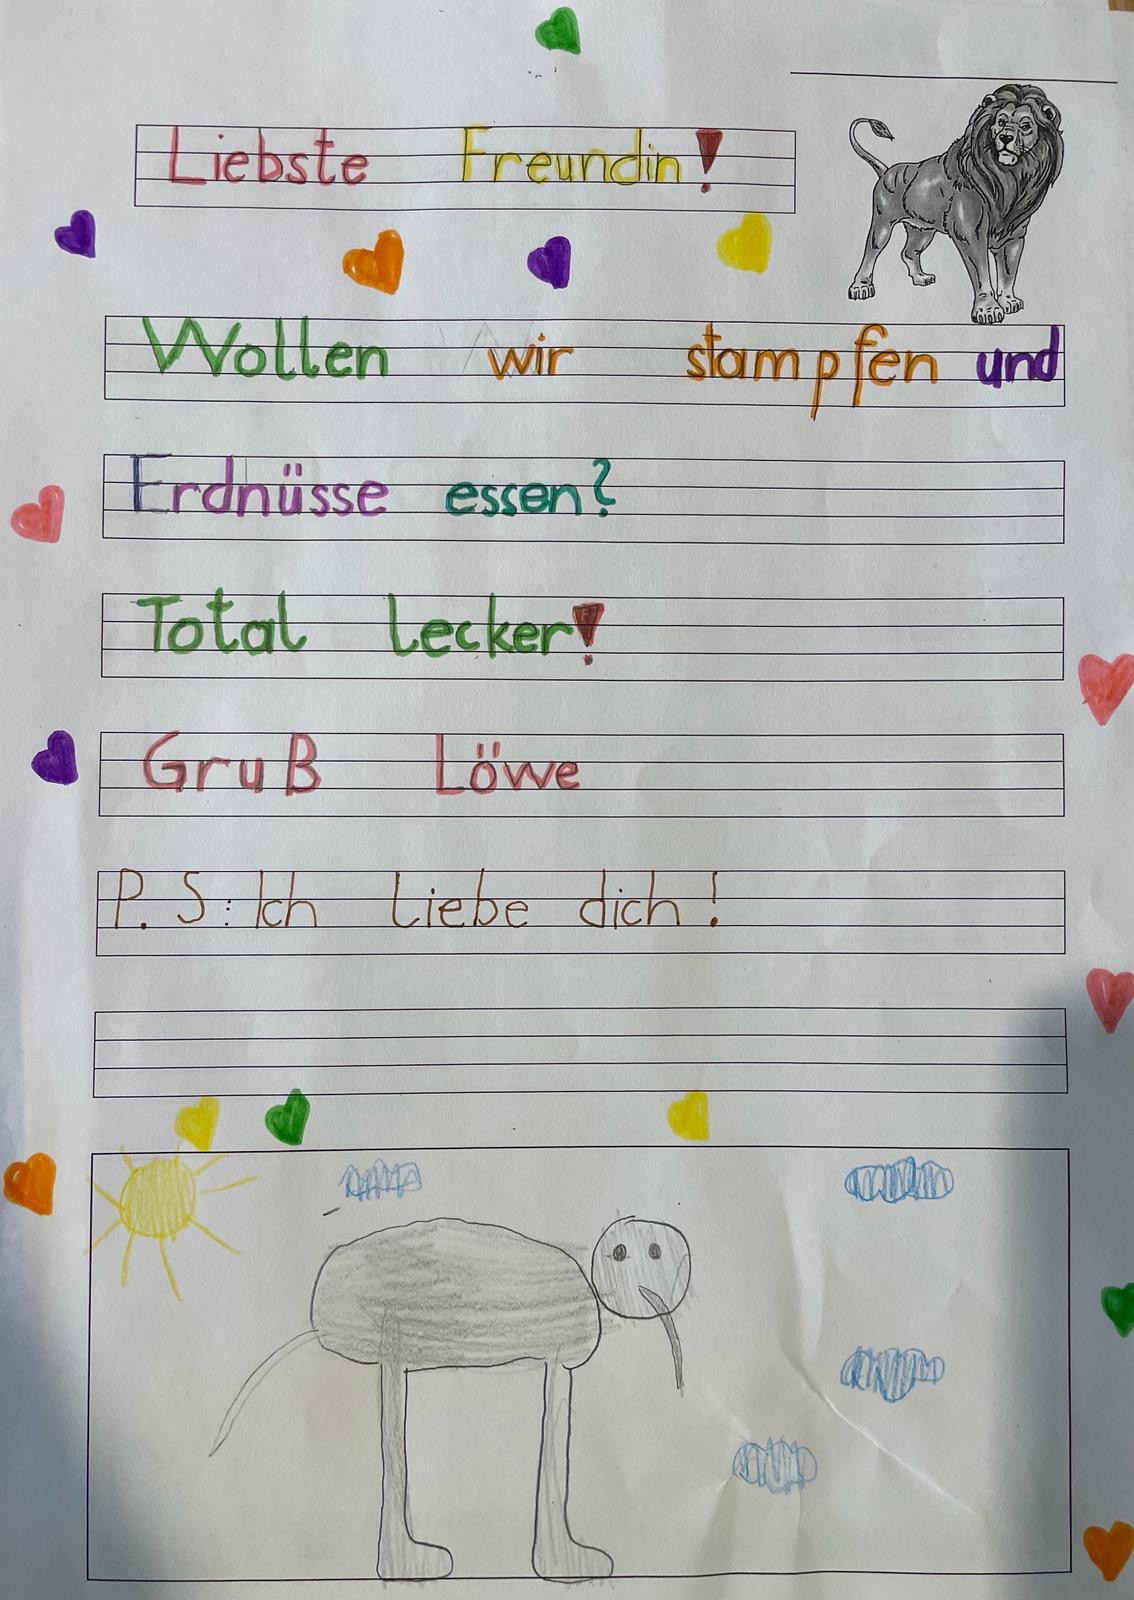 Liebste Freundin!
Wollen wir stampfen und
Erdnüsse essen?
Total lecker!
Gruß Löwe
P.S: Ich liebe dich!